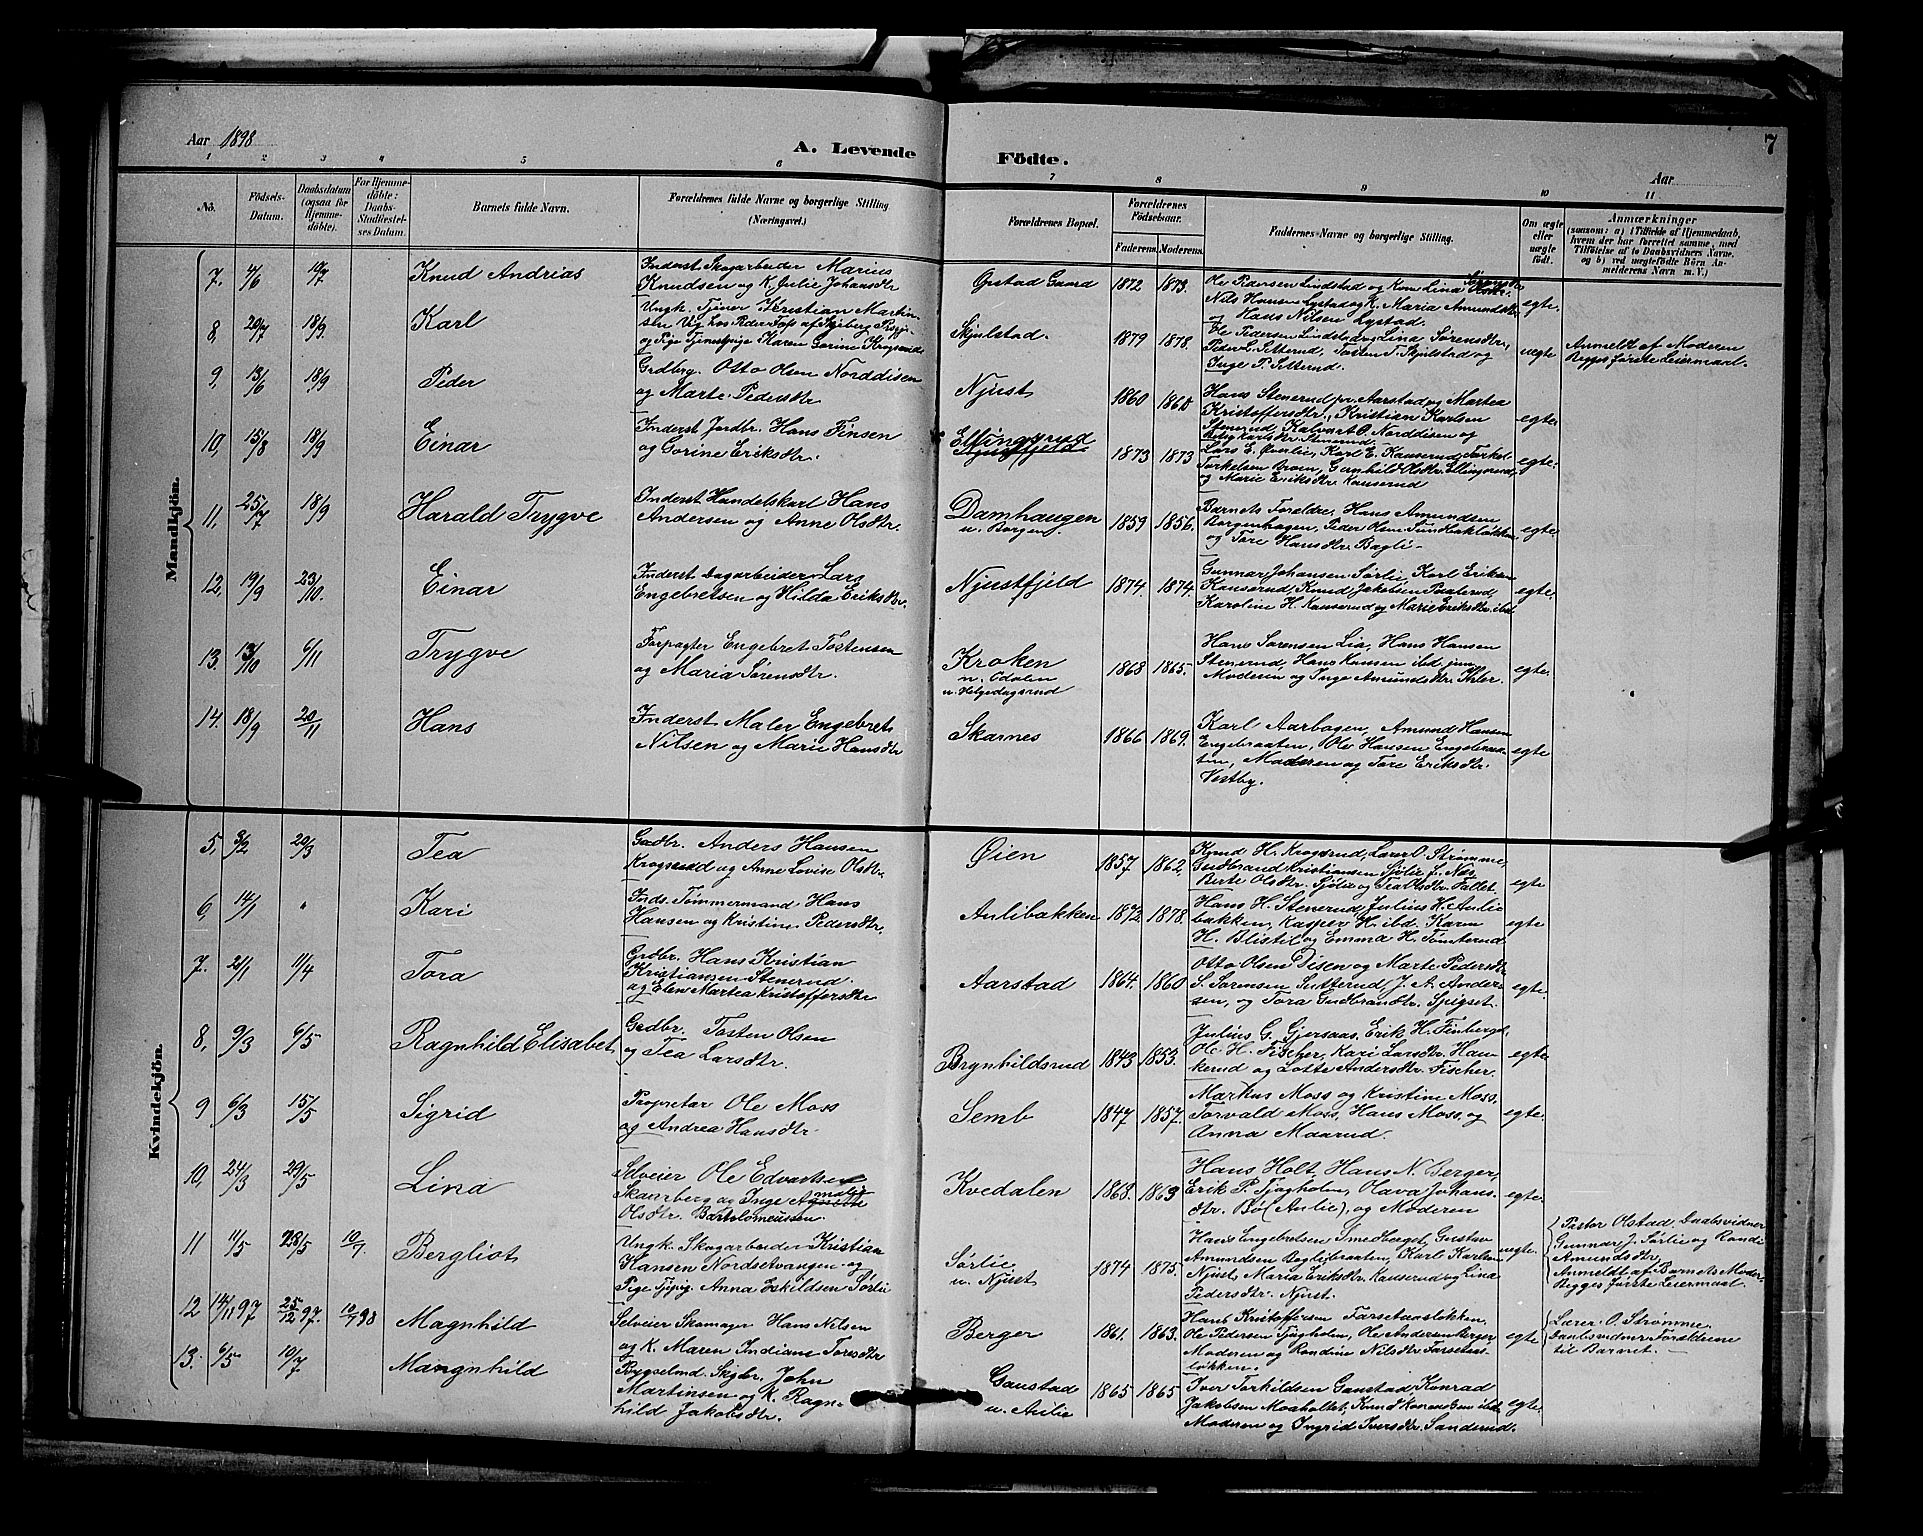 Aar 1898
A. Levende Födte.
7
Aar
1 2 3 4 5 6 7 8 9 10 11
No.
Födsels-Datum.
Daabsdatum (ogsaa for Hjemmedöbte).
For Hjemmedöbte: Daabs-Stadfæstelses Datum.
Barnets fulde Navn.
Forældrenes fulde Navne og borgerlige Stilling (Næringsvei.)
Forældrenes Bopæl.
Forældrenes Födselsaar.
Faderens. Moderens.
Faddernes Navne og borgerlige Stilling.
Om ægte eller uægte födt.
Anmærkninger
(saasom: a) i Tilfælde af Hjemmedaab, hvem der har forrettet samme, med Tilföielse af to Daabsvidners Navne, og b) ved uægtefödte Börn Anmelderens Navn m. V.)
Mandkjön.
7. 4/6 10/7 Knud Andrias
Inderst Skogarbeider Marius
Knudsen og K. Julie Johansdtr
Opstad Gaard 1872 1873.
Ole Pedersen Lindstad og Kone Lina
Nils Hansen Lystad og K. Maria Amundsdtr
og Hans Nilsen Lystad.
egte.
8, 20/7 18/9. Karl
Ungk. Tjener Kristian Martin-
og Pige Tjenestpige Karen Gorine Krogsrud
Skjulstad. 1879 1878.
Ole Pedersen Lindstad og Lina Sörensdtr,
Peder L. Setterud, Tosten T. Skjulstad og
Inge P. Setterud.
uegte
Anmeldt af Moderen
Begges förste Leiermaal.
9, 13/6 18/9 Peder
Grdbrg. Otto Olsen Norddisen
og Marte Pedersdtr
Njust 1860 1860
Hans Stenerud pr. Aarstad og Martea
Kristoffersdtr., Kristian Karlsen
Stenerud, Kalvart O. Norddisen og
Karlsdtr. Stenerud.
egte
10, 15/8 18/9 Einar
Inderst Jordbr. Hans Finsen
og Gorine Eriksdtr.
Ellingsrud
Njustfjeld 1873 1873
Lars E. Ovnlie, Karl E. Kauserud, Torkel
Torkelsen Aroen, Gunhild Olsdtr. Ellingsrud,
og Marie Eriksdtr Kauserud
egte.
11, 25/7 18/9 Harald Trygve
Inderst Handelskarl Hans
Andersen og Anne Olsdtr.
Damhaugen
u. Borgen 1859 1856.
Barnets Foreldre, Hans Amundsen
Borgenhagen, Peder Olsen Tun
og Tore Hansdtr. Bagli.
egte
12, 19/9 23/10. Einar
Inderst Dagarbeider Lars
Engebretsen og Hilda Eriksdtr.
Njustfjeld 1874 1874
Gunnar Johansen Sörlie, Karl Eriksen
Kauserud, Knud Jakobsen
Karoline H. Kauserud og Marie Eriksdtr ibd
egte.
13. 13/10 6/11 Trygve
Forpagter Engebret Tostensen
og Maria Sörensdtr.
Kroken
n. Odalen
u. Helgedagsrud 1868 1865.
Hans Sörensen Lia, Hans Hansen
Stenerud, Hans Hansen ibd. jun.
Moderen og Inge Amundsdtr. Ihler.
egte.
14. 18/9 20/11 Hans
Inderst Maler Engebret
Nilsen og Marie Hansdtr
Skarnes 1866 1869.
Karl Aarbogen, Amund Hansen
Engebraaten, Ole Hansen Engebraa-
ten, Moderen og Tore Eriksdtr.
Vestby.
egte
Kvindekjön.
5, 3/2 20/3 Tea
Grdbr. Anders Hansen
Krogsrud og Anne Lovise Olsdtr.
Öien 1857 1862,
Knud H. Krogsrud, Lærer O. Strömme,
Gudbrand Kristiansen Sjölie f. Nes
Berte Olsdtr. Sjölie og Tea Olsdtr. Fallet
egte
6, 14/1 " Kari
Inds. Tömmermand Hans
Hansen og Kristine Pedersdtr.
Aulibakken 1872 1878.
Hans H. Stenerud, Julius H. Aulie
bakken, Kasper H. ibd. Karen
H. Blistil og Emma H. Tomterud
egte
7. 21/1 11/4 Tora
Grdbr. Hans Kristian
Kristiansen Stenerud.
og Elen Martea Kristoffersdtr
Aarstad 1864. 1860
Otto Olsen Disen og Marte Pedersdtr
S. Sörensen Sutterud, J. A. Ander-
sen, og Tora Gudbrandtr. Spigset.
egte.
8, 9/3 6/5 Ragnhild Elisabet
Grdbr. Tosten Olsen
og Tea Larsdtr.
Brynhildsrud 1843 1853.
Julius G. Gjersaas, Erik H. Finberget,
Ole H. Fischer, Kari Larsdtr. Hau-
kerud og Lotte Andersdtr. Fischer.
egte.
9 6/3 15/5 Sigrid
Proprietær Ole Moss
og Andrea Hansdtr.
Semb 1847 1857.
Markus Moss og Kristine Moss,
Torvald Moss, Hans Moss, og
Anna Maarud.
egte.
10, 24/3 29/5 Lina
Selveier Ole Edvartsen
Skaarberg og Inge Amalie
Olsdtr. Bartolomeussen.
Kvedalen 1868. 1863
Hans Holt, Hans N. Berger,
Erik P. Tjagholen, Olava Johans-
dtr. Bö (Aulie), og Moderen
egte.
11 11/5 28/5 10/7. Bergliot
Ungk. Skogarbeider Kristian
Hansen Nordsetvangen og
Pige Tjpig. Anna Eskildsen Sörlie
Sörlie
u. Njust 1874 1875.
Hans Engebretsen Smedberget, Gustav
Amundsen Beglibraaten, Karl Karlsen
Njust, Maria Eriksdtr. Kauserud og Lina
Pedersdtr. Njust.
uegte.
Pastor Olstad, Daabsvidner
Gunnar J. Sörlie og Randi
Amundsdtr.
Anmeldt af Barnets Moder
Begges förste Leiermaal.
12 14/11 97 25/12 97. 10/7 98 Magnhild
Selveier Skomager Hans Nilsen
og K. Maren Indiane Toresdtr
Berger 1861. 1863.
Hans Kristoffersen Farsetaaslökken,
Ole Pedersen Tjagholen, Ole Andersen Berger
Moderen og Rondine Nilsdtr. Farsetaas-
lökken.
egte
Lærer O. Strömme.
Daabsvidner Foreldrene
til Barnet.
13. 6/5 10/7 Mangnhild
Bygselmd. Skgbr. John
Martinsen og K. Ragn-
hild Jakobsdtr.
Gaustad
u. Aulie 1865 1865
Iver Torkildsen Gaustad, Konrad
Jakobsen Moahallet, Knud Konradsen ibd.
Moderen og Ingrid Iversdtr. Sanderud.
egte.